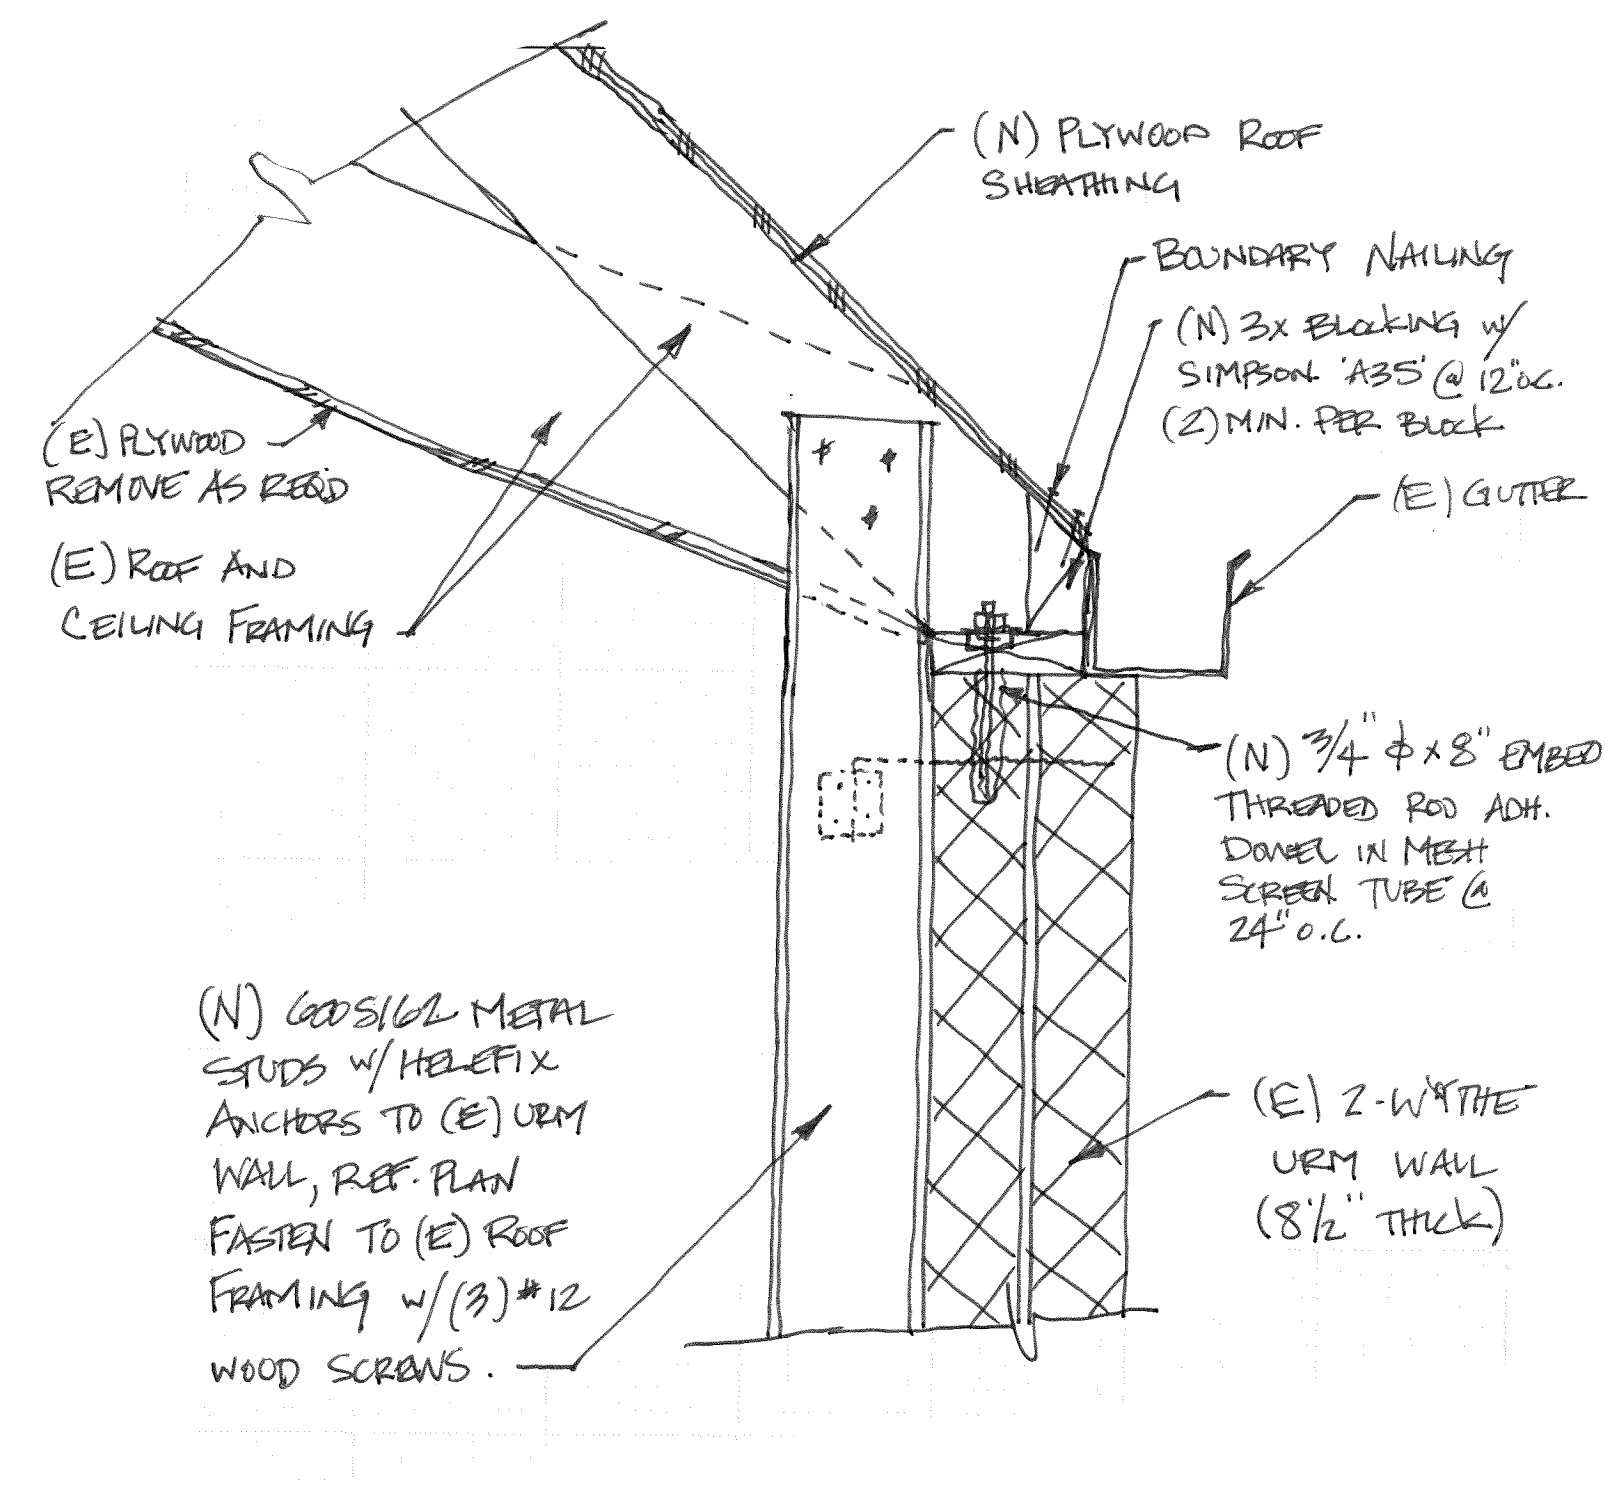 (N) PLYWOOD ROOF
SHEATHING
BOUNDARY NAILING
(N) 3x BLOCKING w/
SIMPSON 'A35' @ 12" O.C.
(2) MIN. PER BLOCK
(E) GUTTER
(E) PLYWOOD
REMOVE AS REQ'D
(E) ROOF AND
CEILING FRAMING
(N) 3/4" ϕ x 8" EMBED
THREADED ROD ADH.
DOWEL IN MESH
SCREEN TUBE @
24" O.C.
(N) 600S162 METAL
STUDS w/ HELEFIX
ANCHORS TO (E) URM
WALL, REF. PLAN
FASTEN TO (E) ROOF
FRAMING w/ (3) #12
WOOD SCREWS.
(E) 2-WYTHE
URM WALL
(8 1/2" THICK)